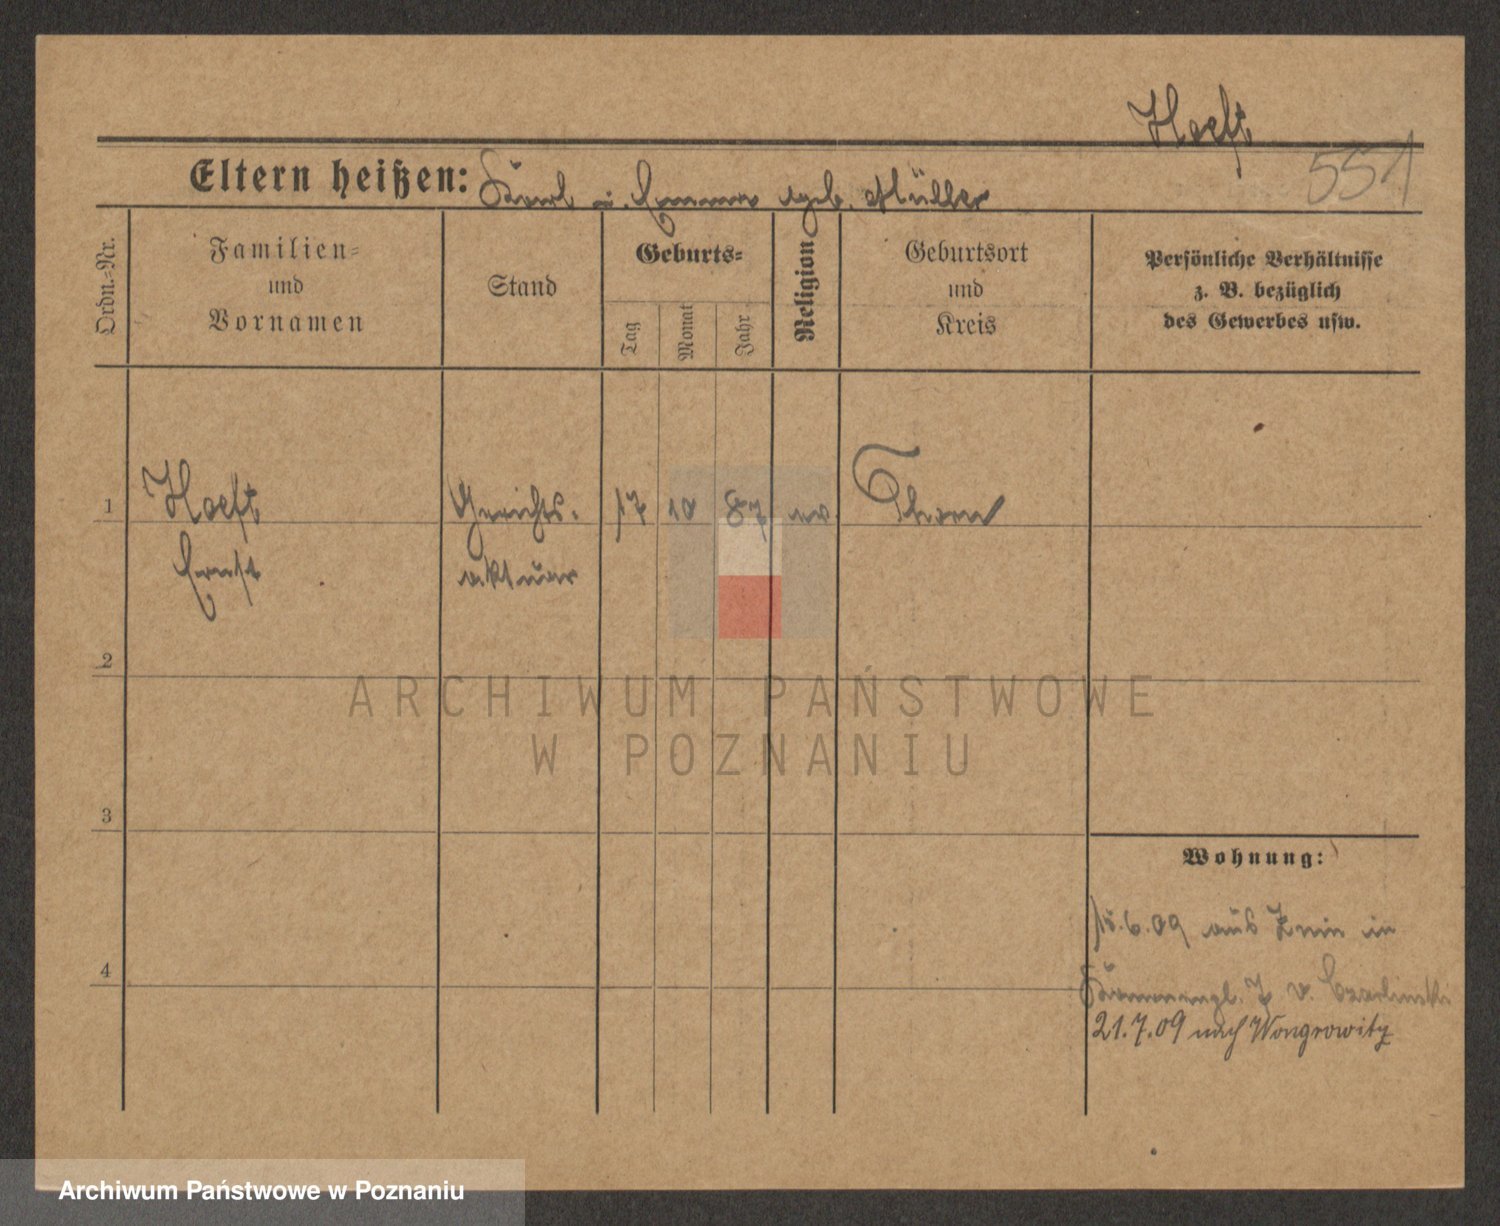 Hoeft
551
Eltern heißen: Karl u. Emma geb. Müller
Ordn.-Nr.
Familien-
und
Vornamen
Stand
Geburts-
Tag
Monat
Jahr
Religion
Geburtsort
und
Kreis
Persönliche Verhältnisse
z. B. bezüglich
des Gewerbes usw.
1
Hoeft
Ernst
Gerichts-
aktuar
17
10
87
ev.
Thorn
2
ARCHIWUM PAŃSTWOWE
W POZNANIU
3
Wohnung:
15.6.09 aus Znin in
4
7 v. Czarlinski
21.7.09 nach Wongrowitz
Archiwum Państwowe w Poznaniu